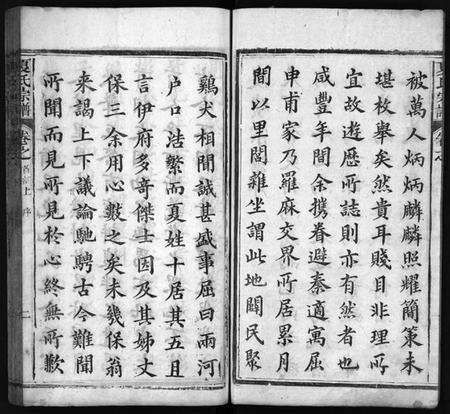 被萬人炳炳麟麟照耀簡策未
堪枚舉矣然貴耳賤目非理所
宜故遊歷所誌則亦有然者也
咸豐年間余携眷避秦適寓屈
申甫家乃羅麻交界所居累月
間以里閭雜坐謂此地闢民聚
雞犬相聞誠甚盛事屈曰兩河
户口浩繁而夏姓十居其五且
言伊府多奇傑士因及其姊丈
保三余用心數之矣未幾保翁
来謁上下議論馳騁古今難聞
所聞而見所見於心終無所歉
夏氏宗譜
卷之